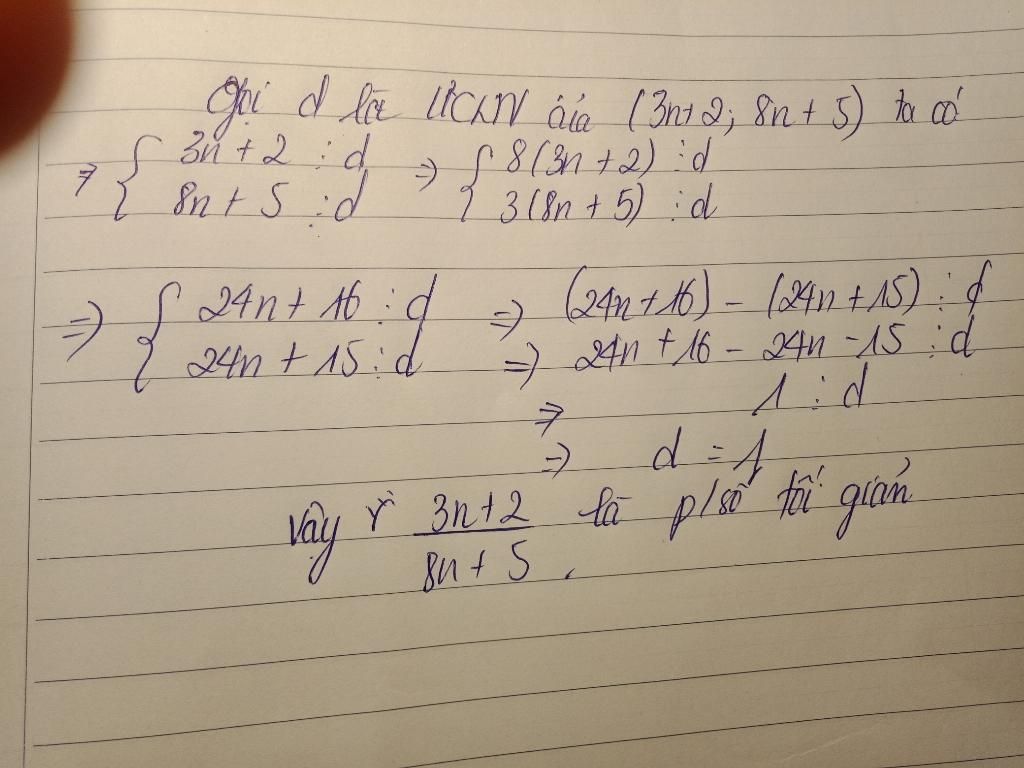 Gọi d là ƯCLN của (3n+2; 8n+5) ta có
=> { 3n+2 ⋮ d => { 8(3n+2) ⋮ d
8n+5 ⋮ d 3(8n+5) ⋮ d
=> { 24n+16 ⋮ d => (24n+16) - (24n+15) ⋮ d
24n+15 ⋮ d => 24n+16 - 24n-15 ⋮ d
=> 1 ⋮ d
=> d = 1
Vậy 3n+2 là p/số tối giản
8n+5.